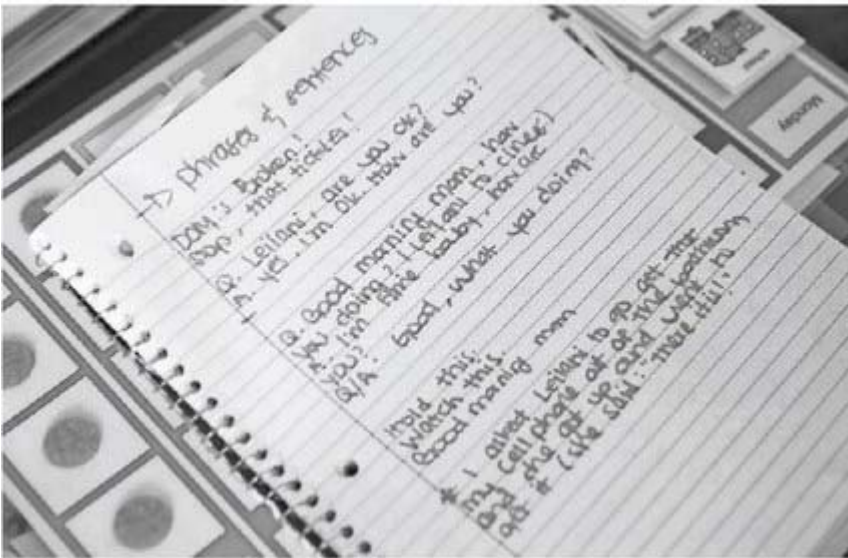 → phrases & sentences
DOM's Broken!
Stop, that tickles!
Q. Leilani, are you ok?
A. yes, I'm Ok. How are you?
Q. Good morning mom, how
you doing? (Leilani to
A: I'm fine baby, how are
you?
Q/A: Good, what you doing?
Hold this.
Watch this.
Good morning mom
* I asked Leilani to go get the
my cell phone out of the bathroom
and she got up and went to
get it (she said: "There it is!"
Monday